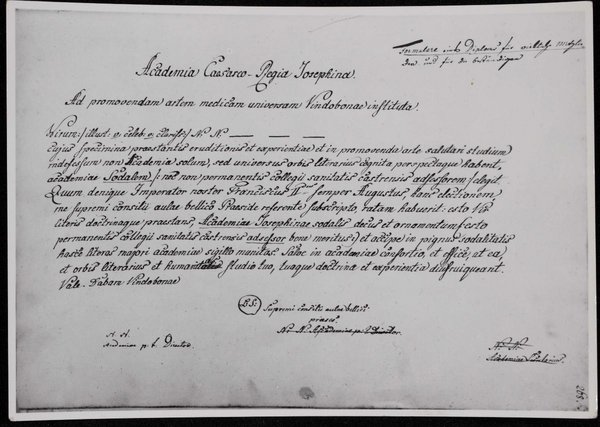 Formulare
Academia Caesareo-Regia Josephina
Ad promovendam artem medicam universam Vindobonae instituta.
Virum: / illust: e: celeb: e: clariss: / N: N: — — —
Cujus specimina praestantis eruditionis et experientiae et in promovenda arte salutari studium
indefessum non Academia solum, sed universus orbis literarius cognita perspectaque habent,
academiae Sodalem /: nec non permanentis collegii sanitatis castrensis adsessorem / elegit.
Quum denique Imperator noster Franciscus II semper Augustus, hanc electionem,
me supremi consilii aulae bellici Praeside referente subscripto, ratam habuerit: esto Vir
literis doctrinaque praestans, Academiae Josephinae sodalis decus et ornamentum /esto
permanentis collegii sanitatis castrensis adsessor bene meritus:/ et accipe in pignus sodalitatis
hasce literas majori academiae sigillo munitas. Salve in academiae consortio, et effice, ut ea,
et orbis literarius et humanitas studio tuo, tuaque doctrina et experientia diu fruiqueant.
Vale. Dabam Vindobonae
L:S: Supremi consilii aulae bellici
praeses
N: N: Academiae p: t Director
N. N.
Academiae p. t. Director
N: N:
Academiae
268.